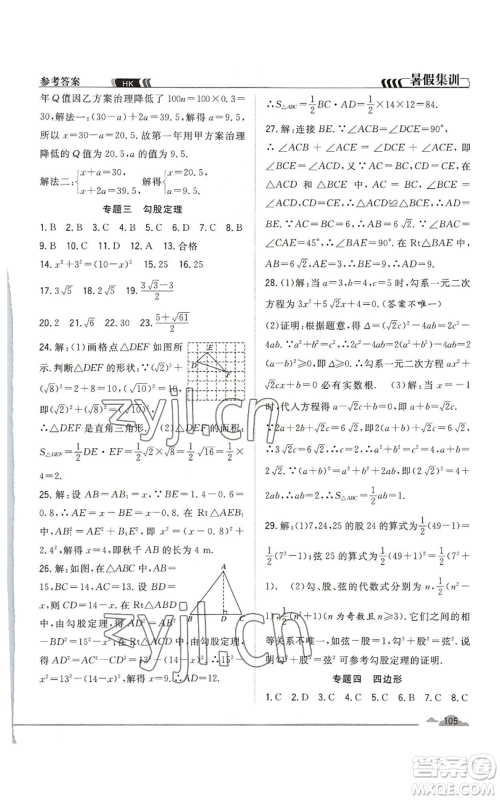 参考答案 HK 暑假集训
年 Q 值因乙方案治理降低了 100n=100×0.3=
30,解法一:(30-a)+2a=39.5,∴a=9.5,x
=20.5,∴x=20.5,第一年用甲方案治理降低
的 Q 值为 20.5,a 的值为 9.5.
解法二:{x+a=30, x+2a=39.5, 解得{x=20.5, a=9.5.
专题三 勾股定理
1. B 2. B 3. C 4. B 5. C 6. D 7. C 8. B
9. B 10. C 11. D 12. A 13. 合格
14. x²+3²=(10-x)² 15. 25 16. 25
17. 3√5 18. √2 19. (3√3-3)/2
20. 2 21. √6 22. 30 23. (5+√61)/2
24. 解:(1)画格点△DEF 如图所
示. 判断△DEF 的形状:∵(√2)²+
(√8)²=2+8=10,(√10)²=10,
即(√2)²+(√8)²=(√10)²,
∴△DEF 是直角三角形. (2)△DEF 的面积,
S△DEF=1/2DE·EF=1/2√2×√8=1/2√16=1/2×
4=2.
25. 解:设 AB=AD=x,∵BE=1.4-0.6=
0.8,∴AE=AB-BE=x-0.8,在 Rt△AED
中,AD²=AE²+DE²,∴x²=(x-0.8)²+
2.4²,解得 x=4,即秋千 AB 的长为 4 m.
26. 解:如图,在△ABC 中,AB=
15,BC=14,AC=13,设 BD=x,
则 CD=14-x. 在 Rt△ABD 与
Rt△ACD 中,由勾股定理得 AD²=AB²
-BD²=15²-x²,
AD²=AC²-CD²=13²-(14-x)²,∴15²-
x²=13²-(14-x)²,解得 x=9. ∴AD=12,
∴S△ABC=1/2BC·AD=1/2×14×12=84.
27. 解:连接 BE. ∵∠ACB=∠DCE=90°,
∴∠ACB-∠ACE=∠DCE-∠ACE,
∴∠BCE=∠ACD. ∵AC=BC,
DC=EC,∴△ACD≌△BCE,∴AD=
BE. ∵AC=BC=6,∴AB=6√2. ∵∠BAC=
∠CAE=45°,∴∠BAE=90°. 在 Rt△BAE
中,AB=6√2,AE=3,∴BE=9,∴AD=9.
28. (1)解:当 a=3,b=4,c=5 时,勾系一元二次
方程为 3x²+5√2x+4=0.(答案不唯一)
(2)证明:根据题意,得 Δ=(√2c)²-4ab=2c²-
4ab. ∵a²+b²=c²,∴2c²-4ab=2(a²+b²)-
4ab=2(a-b)²≥0,即 Δ≥0,∴勾系一元二次方
程 ax²+√2cx+b=0 必有实数根. (3)解:当 x=-1
时,代入方程得 a-√2c+b=0,即 a+b=√2c,
∵2a+2b+√2c=6√2,即 2(a+b)+√2c=6√2,
∴3√2c=6√2,∴c=2,∴a²+b²=c²=4,a+b=
2√2. ∵(a+b)²=a²+2ab+b²,∴2ab=4,
∴ab=2,∴S△ABC=1/2ab=1.
29. 解:(1)7,24,25 的股 24 的算式为1/2(49-1)=
1/2(7²-1);弦 25 的算式为1/2(49+1)=1/2(7²+
1). (2)勾、股、弦的代数式分别为 n,1/2(n²-
1),1/2(n²+1)(n 为奇数且 n≥3). 它们之间的相
等关系不唯一,如弦-股=1,勾²+股²=弦². 说
明勾²+股²=弦²可参考勾股定理的证明.
专题四 四边形
1. C 2. C 3. D 4. C 5. D 6. C 7. C 8. C
105
zyjl.cn
zyjl.cn